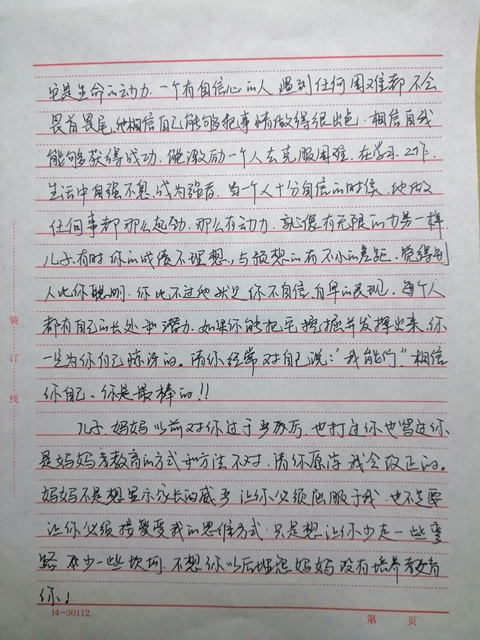 它是生命的动力,一个有自信心的人遇到任何困难都不会
畏首畏尾,他相信自己能够把事情做得很出色,相信自我
能够获得成功,能激励一个人去克服困难,在学习、工作、
生活中自强不息,成为强者,当一个人十分自信的时候,他做
任何事都那么起劲,那么有动力,就像有无限的力量一样
儿子,有时你的成绩不理想,与预想的有不小的差距,觉得别
人比你聪明,你比不过他就是你不自信,自卑的表现,每个人
都有自己的长处和潜力,如果你能把它挖掘并发挥出来,你
一定为你自己惊讶的。请你经常对自己说:"我能行","相信
你自己,你是最棒的!!
儿子,妈妈以前对你过于严厉,也打过你也骂过你
是妈妈考教育的方式和方法不对,请你原谅我会改正的。
妈妈不是想显示家长的威严让你必须屈服于我,也不是要
让你必须接受我的思维方式,只是想让你少走一些弯
路 少一些坎坷,不想你以后埋怨妈妈没有培养教育
你!
14-30112
第 页
装
订
线